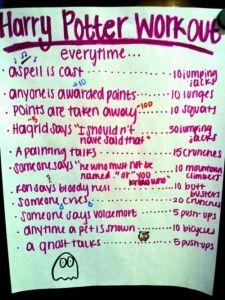 Harry Potter Workout
everytime...
• a spell is cast ........ 10 jumping jacks
+10
• anyone is awarded points ..... 10 lunges
• Points are taken away -100 ..... 10 squats
-5
• Hagrid says "I shouldn't have said that" ..... 30 jumping jacks
• A painting talks ........ 15 crunches
• Someone says "he who must not be named" or "you know who" ..... 10 mountain climbers
• Ron says bloody hell ..... 10 butt busters
• someone cries ........ 20 crunches
• Someone says voldemort ..... 5 push-ups
• anytime a pet is shown ..... 10 bicycles
• a ghost talks ........ 5 push-ups